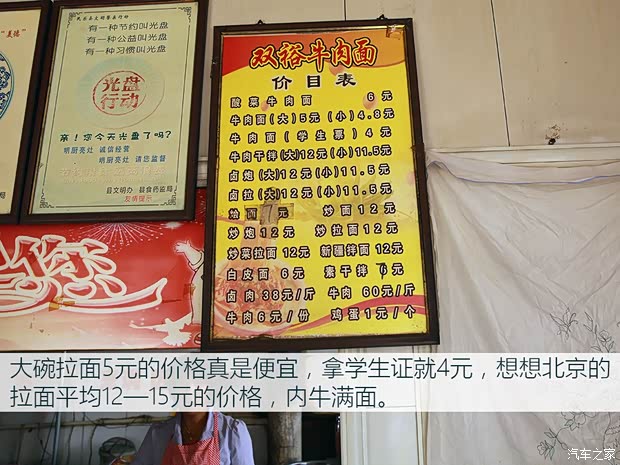 "美德"
有一种节约叫光盘
有一种公益叫光盘
有一种习惯叫光盘
光盘
行动
亲!您今天光盘了吗?
明厨亮灶 诚信经营
明厨亮灶 请您监督
县文明办 县食药监局
友情提示
双裕牛肉面
价目表
酸菜牛肉面 6元
牛肉面(大)5元(小)4.8元
牛肉面(学生票)4元
牛肉干拌(大)12元(小)11.5元
卤炮(大)12元(小)11.5元
卤拉(大)12元(小)11.5元
烩面7元 炒面12元
炒炮12元 炒拉面12元
炒菜拉面12元 新疆拌面12元
白皮面 6元 素干拌 6元
卤肉38元/斤 牛肉 60元/斤
牛肉6元/份 鸡蛋1元/个
大碗拉面5元的价格真是便宜,拿学生证就4元,想想北京的
拉面平均12—15元的价格,内牛满面。
汽车之家